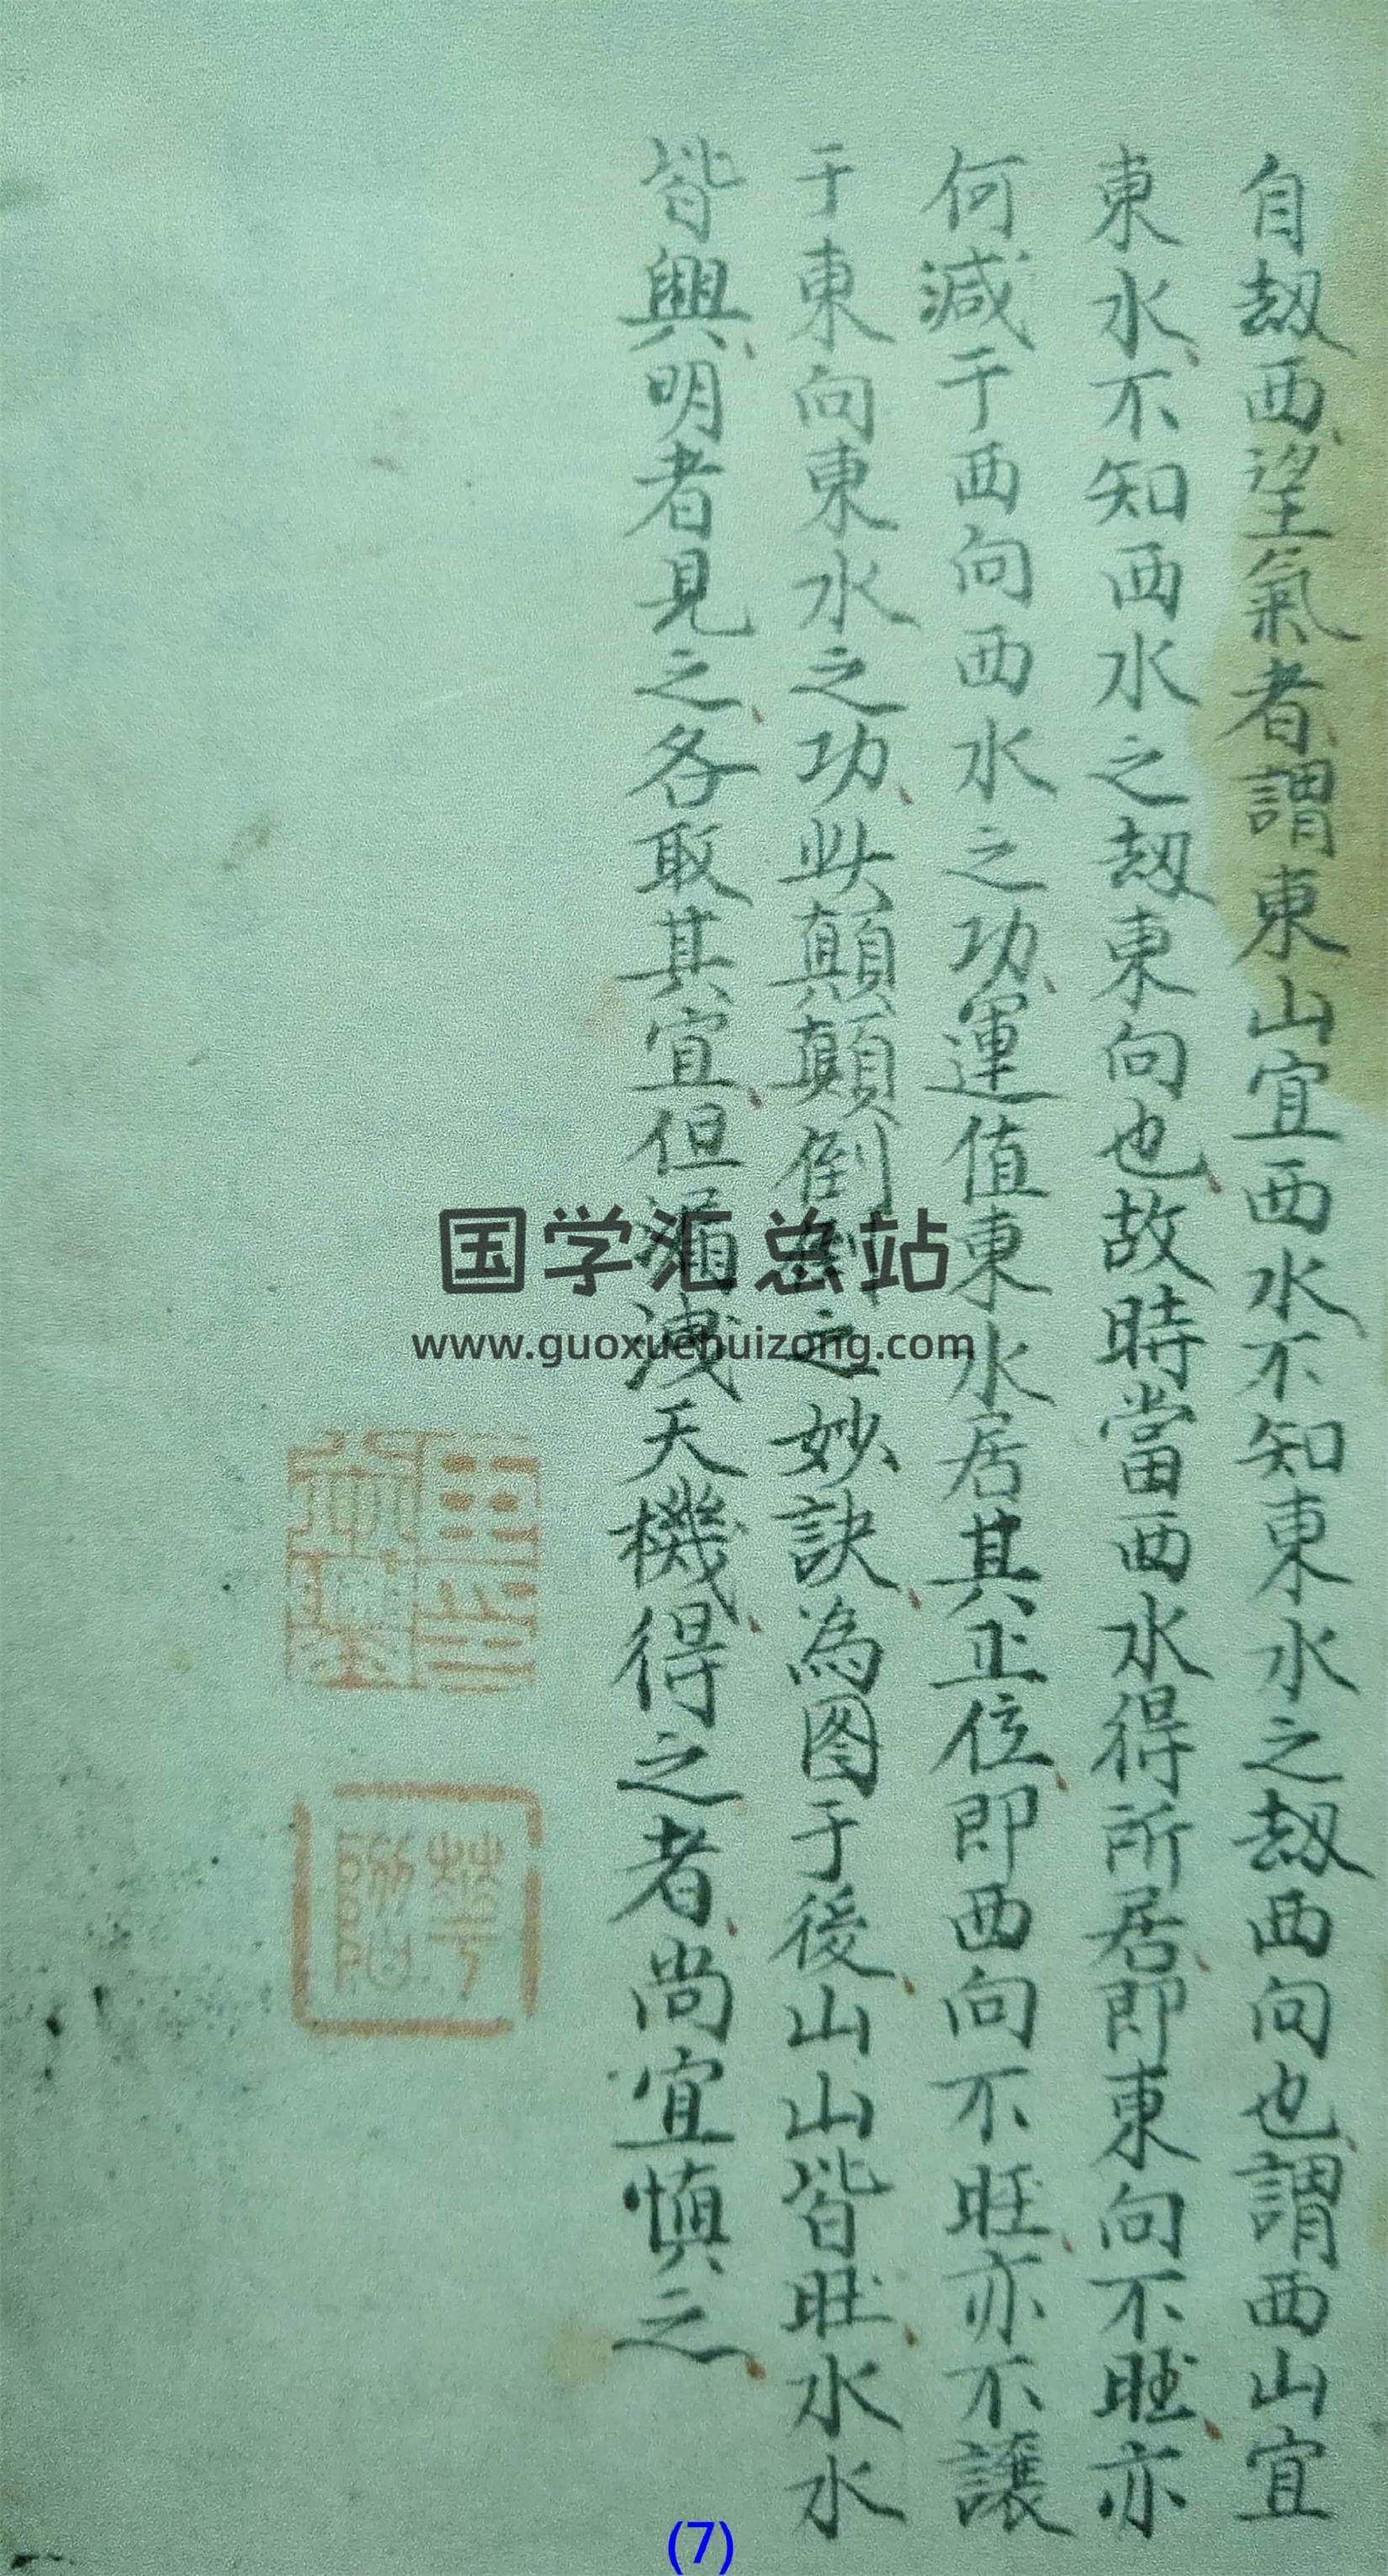 自刼西望氣者謂東山宜西水不知東水之刼西向也謂西山宜
東水不知西水之刼東向也故時當西水得所居即東向不旺亦
何減于西向西水之功運值東水居其正位即西向不旺亦不讓
于東向東水之功此顛顛倒倒之妙訣為图于後山山皆旺水水
皆興明者見之各取其宜但漏洩天機得之者尚宜慎之
国学汇总站
www.guoxuehuizong.com
(7)